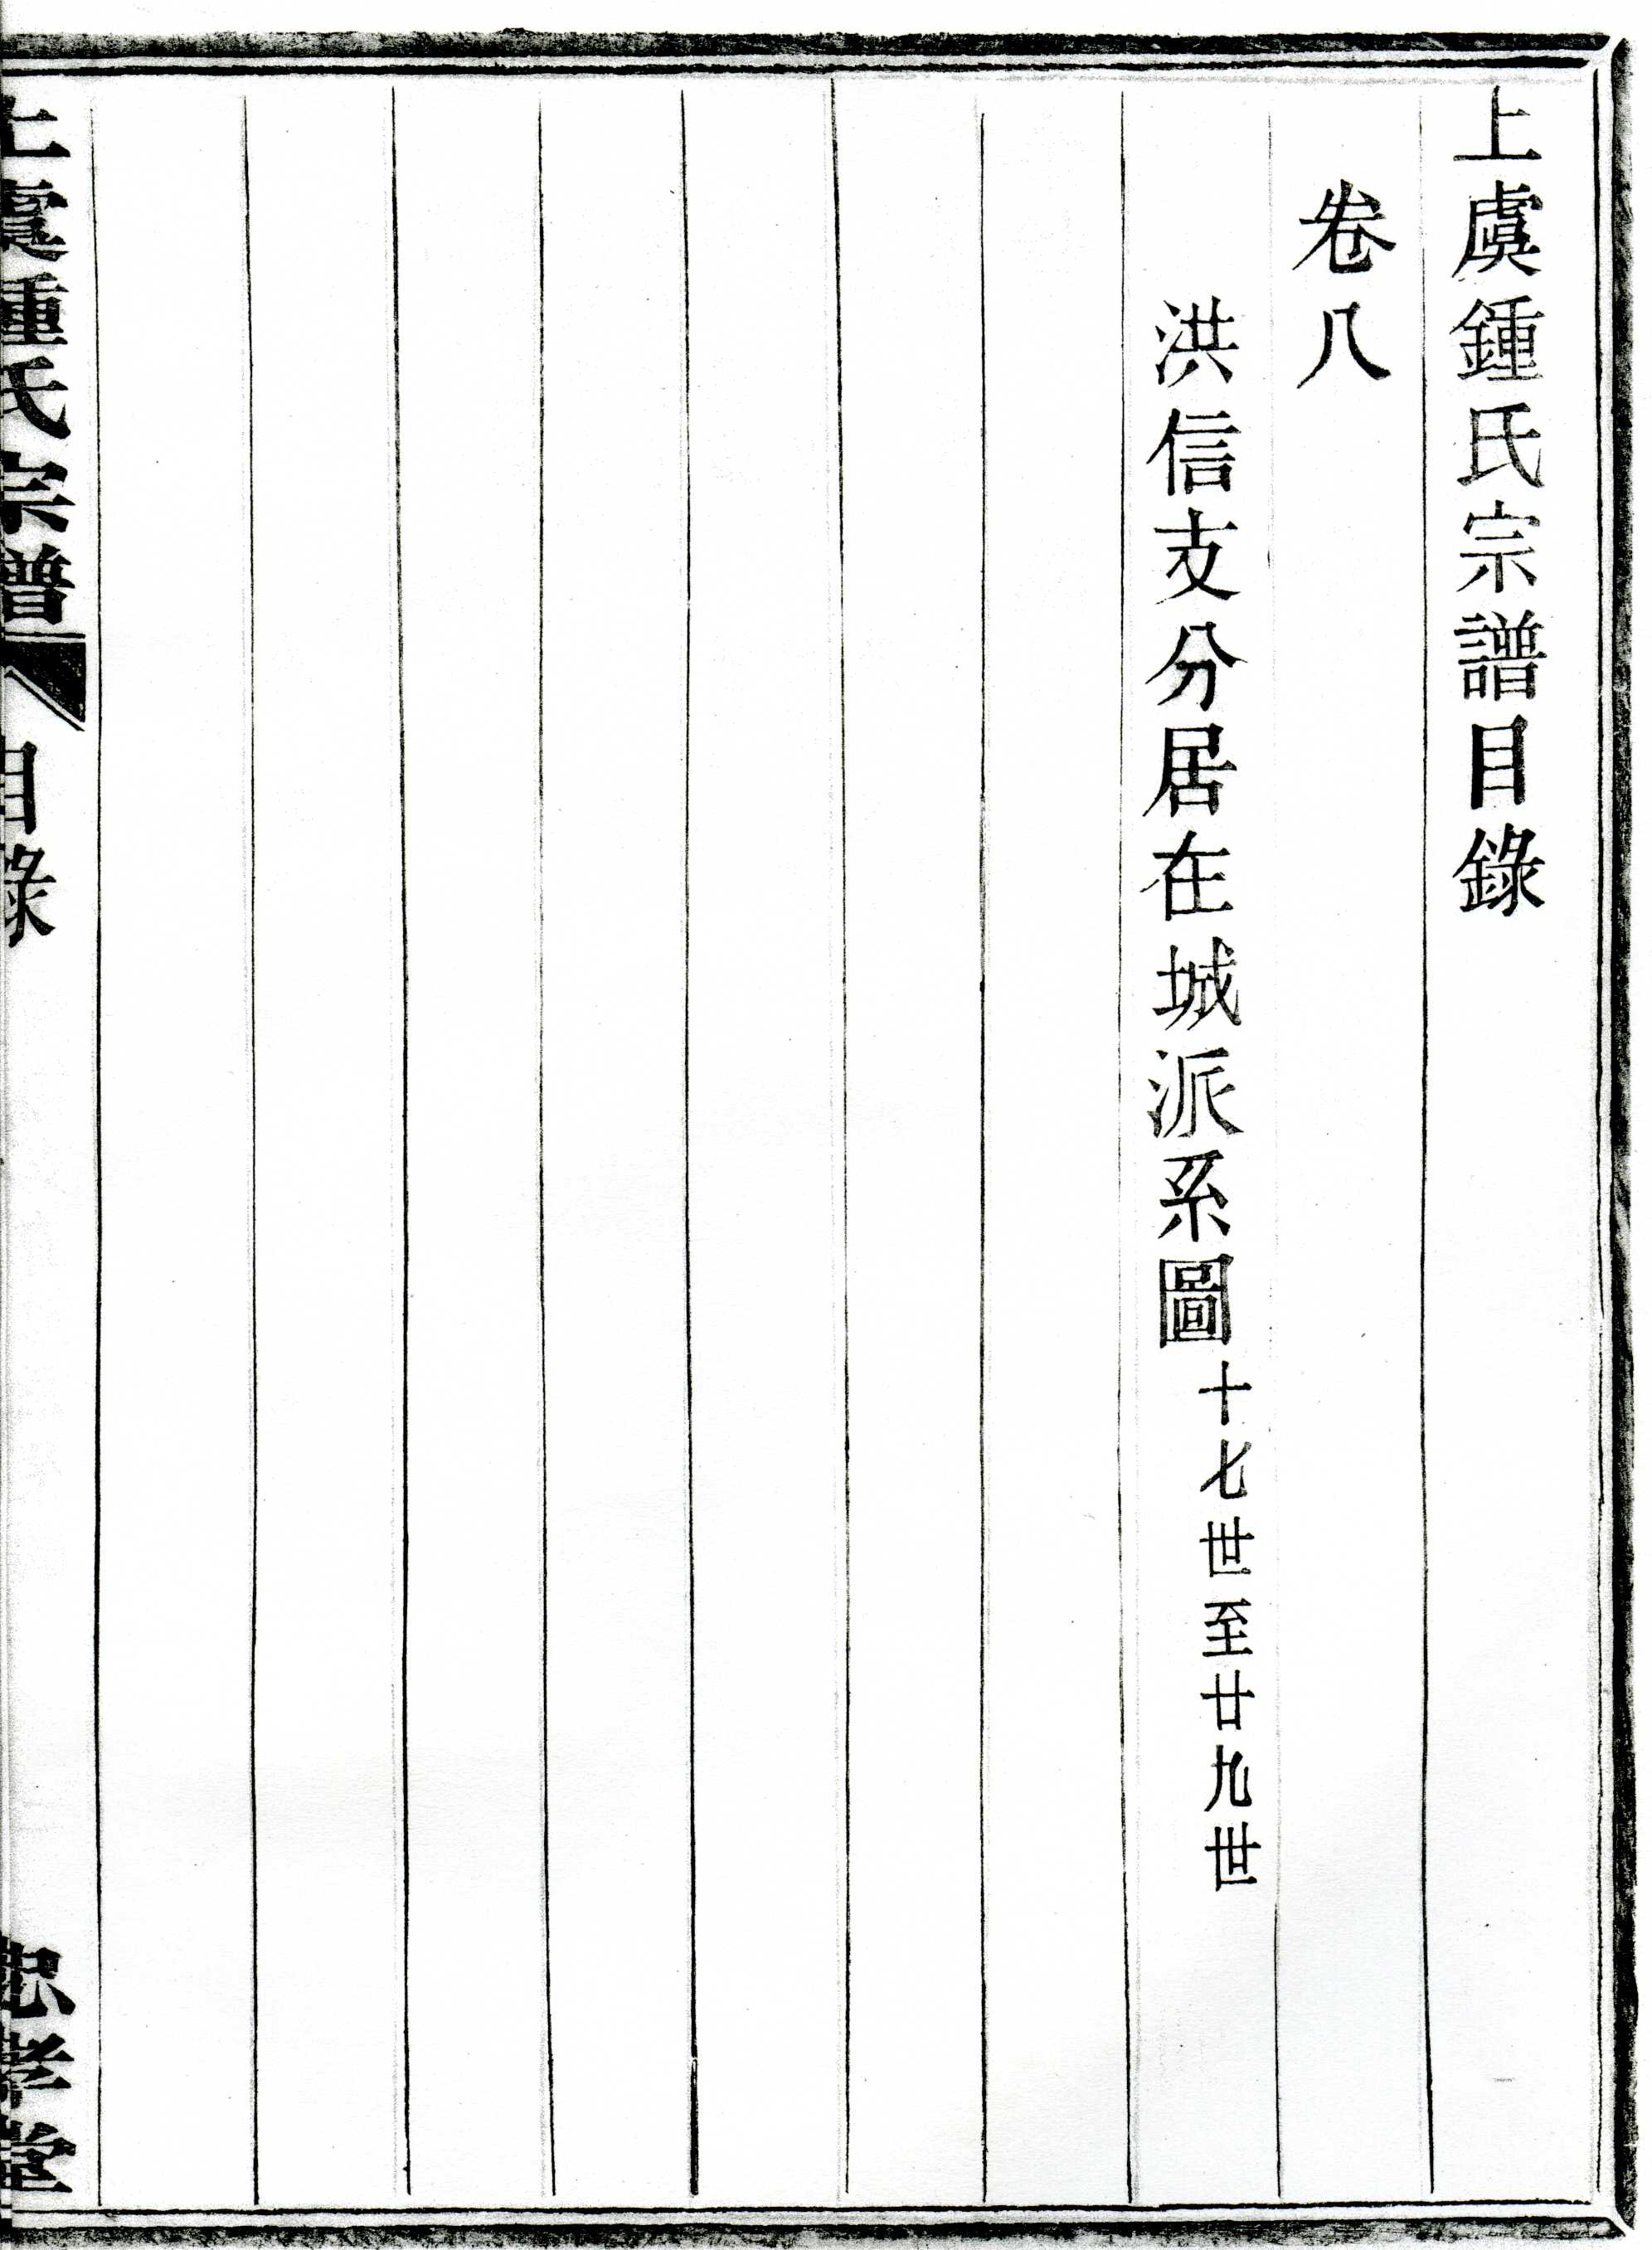 上虞鍾氏宗譜目錄
卷八
洪信支分居在城派系圖十七世至廿九世
上虞鍾氏宗譜
目錄
忠孝堂